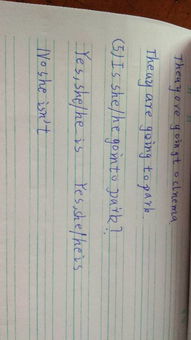 They are going to cinema
They are going to park.
(5) Is she/he going to park?
Yes, she/he is Yes, she/he is
No she isn't